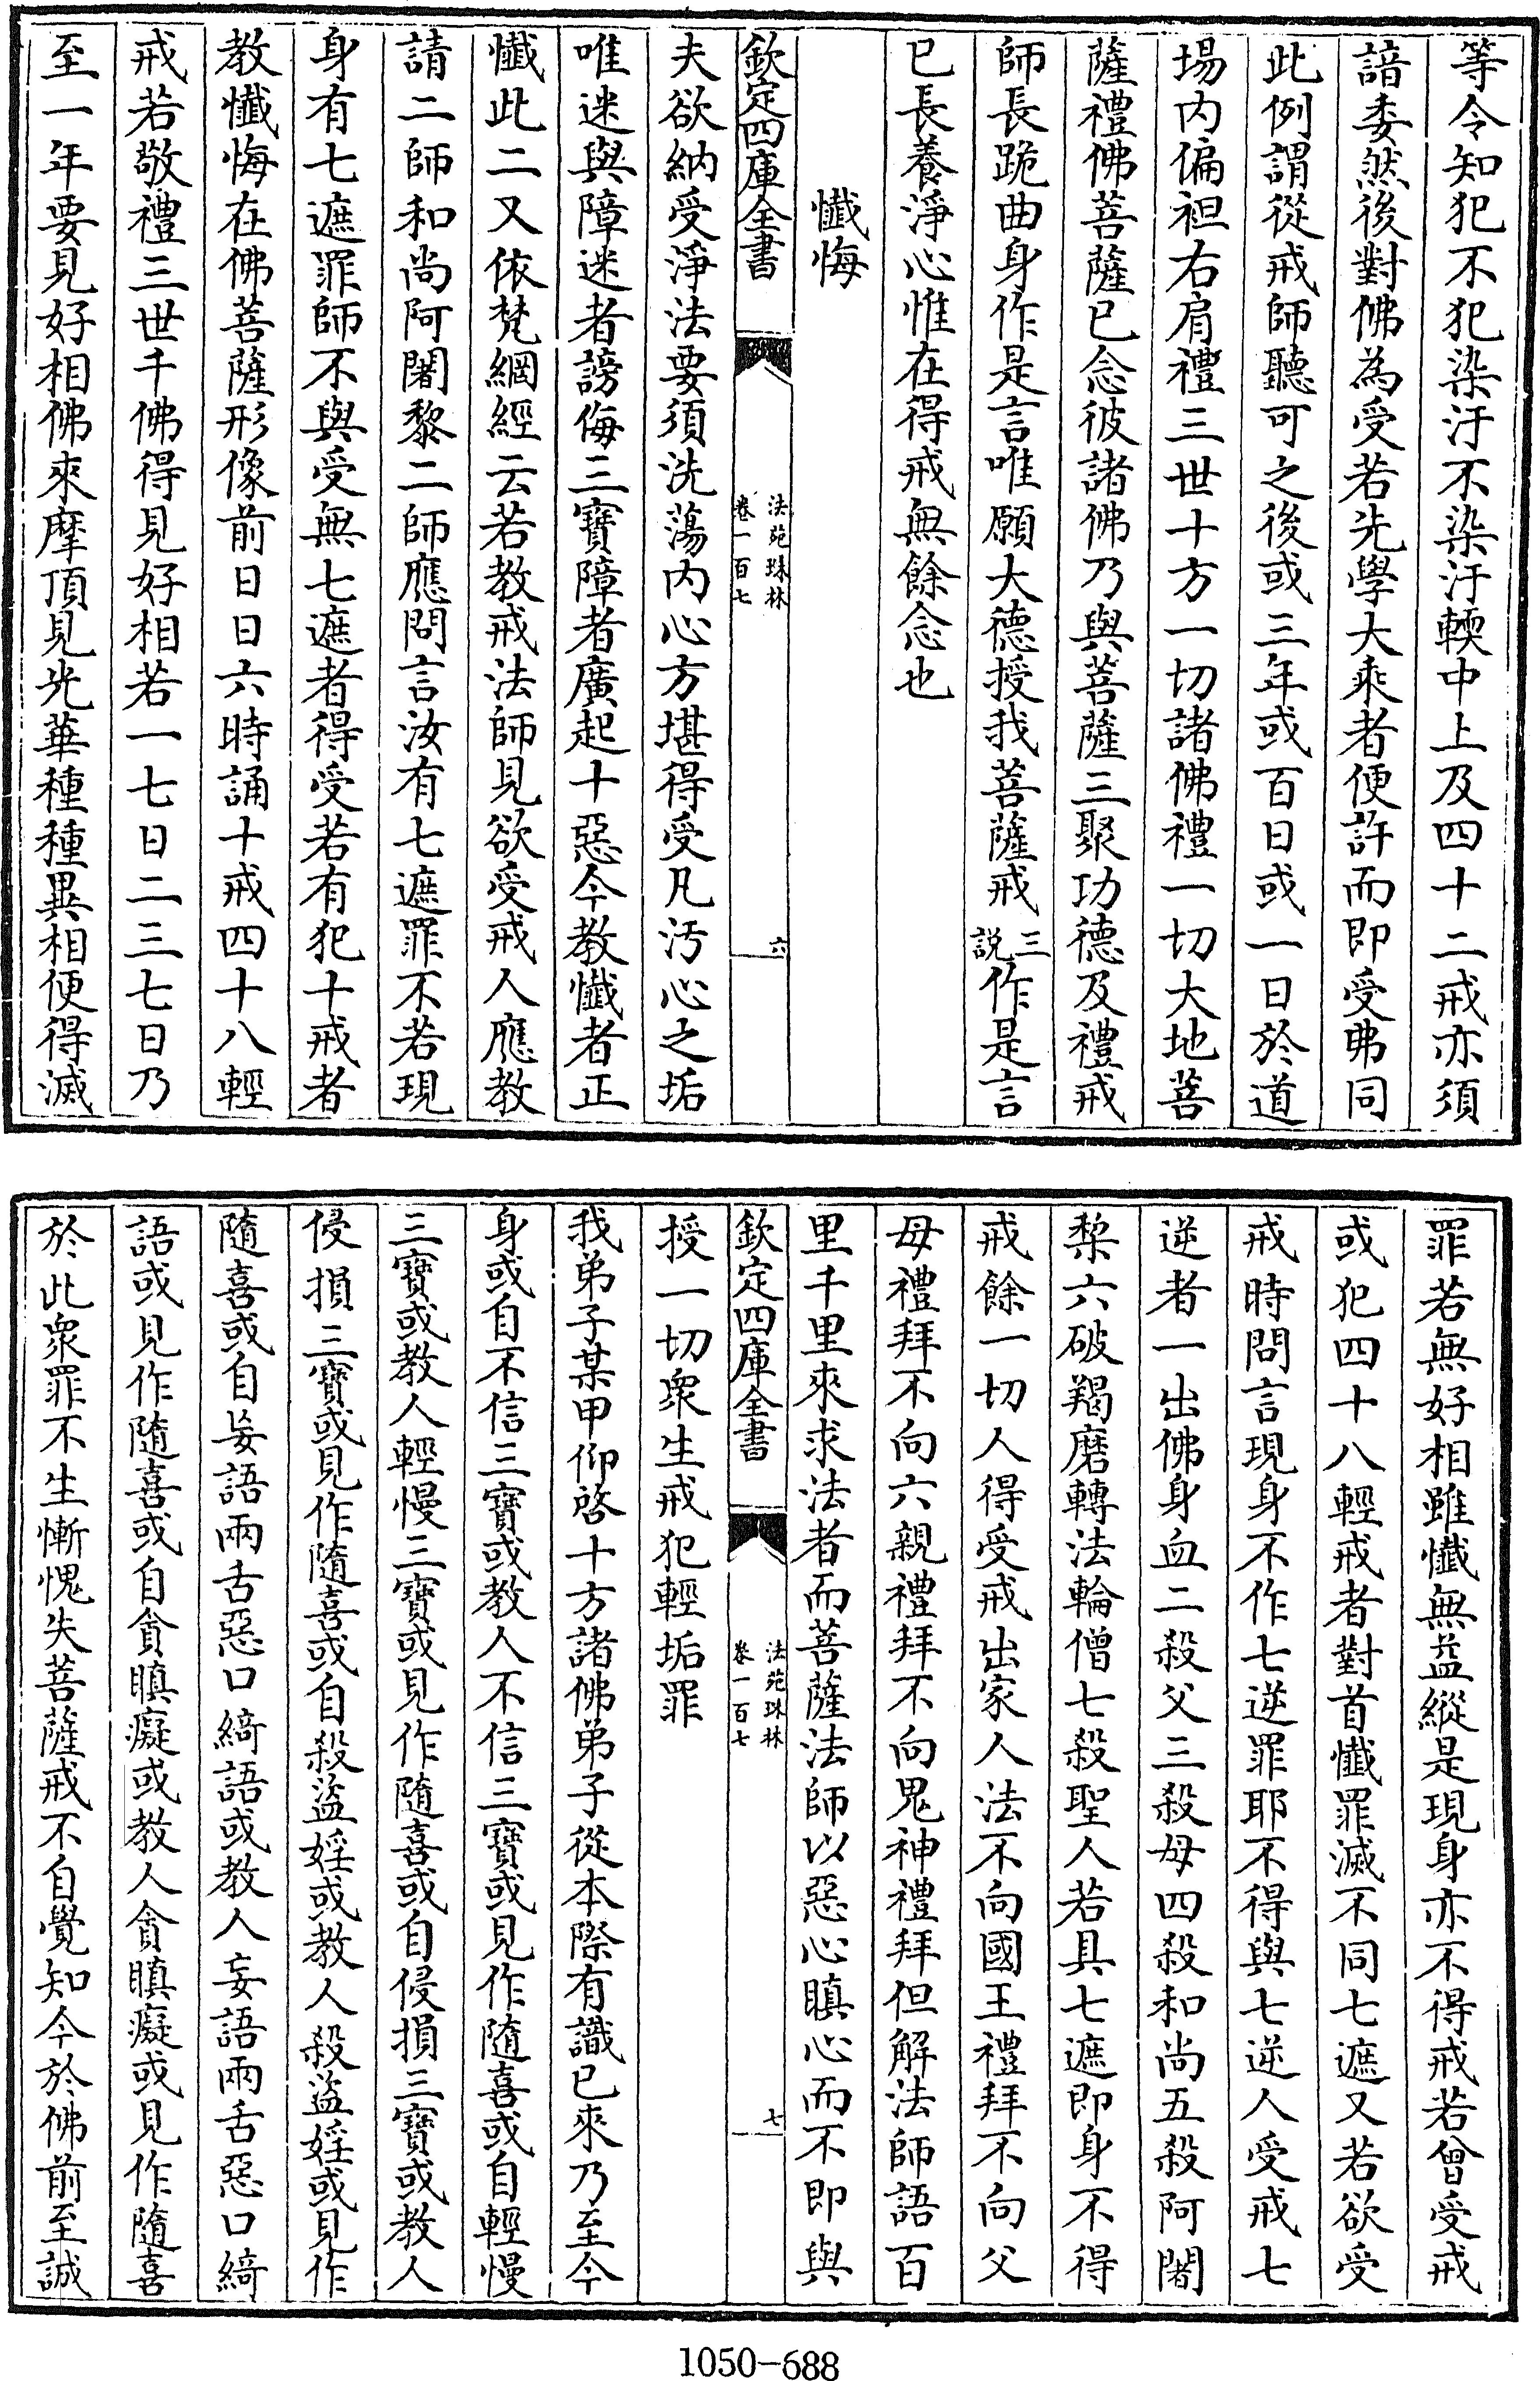 等令知犯不犯染汙不染汙輭中上及四十二戒亦須
諳委然後對佛為受若先學大乘者便許而即受弗同
此例謂從戒師聽可之後或三年或百日或一日於道
場内偏袒右肩禮三世十方一切諸佛禮一切大地菩
薩禮佛菩薩已念彼諸佛乃與菩薩三聚功德及禮戒
師長跪曲身作是言唯願大德授我菩薩戒三說作是言
已長養淨心惟在得戒無餘念也
懺悔
欽定四庫全書
法苑珠林
卷一百七
六
夫欲納受淨法要須洗蕩内心方堪得受凡汚心之垢
唯迷與障迷者謗侮三寶障者廣起十惡今教懺者正
懺此二又依梵網經云若教戒法師見欲受戒人應教
請二師和尚阿闍黎二師應問言汝有七遮罪不若現
身有七遮罪師不與受無七遮者得受若有犯十戒者
教懺悔在佛菩薩形像前日日六時誦十戒四十八輕
戒若敬禮三世千佛得見好相若一七日二三七日乃
至一年要見好相佛來摩頂見光華種種異相便得滅
罪若無好相雖懺無益縱是現身亦不得戒若曾受戒
或犯四十八輕戒者對首懺罪滅不同七遮又若欲受
戒時問言現身不作七逆罪耶不得與七逆人受戒七
逆者一出佛身血二殺父三殺母四殺和尚五殺阿闍
棃六破羯磨轉法輪僧七殺聖人若具七遮即身不得
戒餘一切人得受戒出家人法不向國王禮拜不向父
母禮拜不向六親禮拜不向鬼神禮拜但解法師語百
里千里來求法者而菩薩法師以惡心瞋心而不即與
欽定四庫全書
法苑珠林
卷一百七
七
授一切衆生戒犯輕垢罪
我弟子某甲仰啓十方諸佛弟子從本際有識已來乃至今
身或自不信三寶或教人不信三寶或見作隨喜或自輕慢
三寶或教人輕慢三寶或見作隨喜或自侵損三寶或教人
侵損三寶或見作隨喜或自殺盜婬或教人殺盜婬或見作
隨喜或自妄語兩舌惡口綺語或教人妄語兩舌惡口綺
語或見作隨喜或自貪瞋癡或教人貪瞋癡或見作隨喜
於此衆罪不生慚愧失菩薩戒不自覺知今於佛前至誠
1050-688